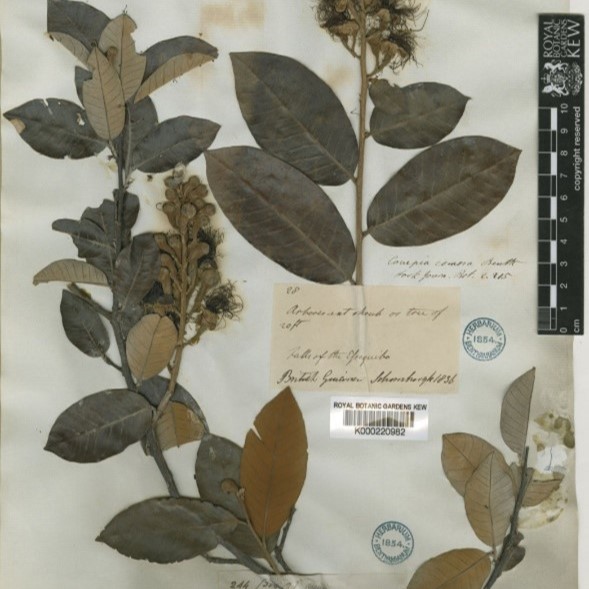 ROYAL
BOTANIC
GARDENS
KEW
copyright reserved
10
9
8
7
6
5
4
3
2
1
0
cm
Couepia comosa Benth
Hook Journ. Bot. 2. 215
28
Arborescent shrub or tree of
20ft
Falls of the Essequibo
British Guiana Schomburgk 1836
HERBARIUM
1854.
BENTHAMIANUM
ROYAL BOTANIC GARDENS KEW
K000220982
HERBARIUM
1854.
BENTHAMIANUM
244